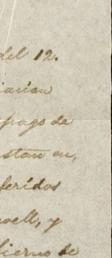 del 12.
pago de
estan en,
feridos
well, y
bierno de